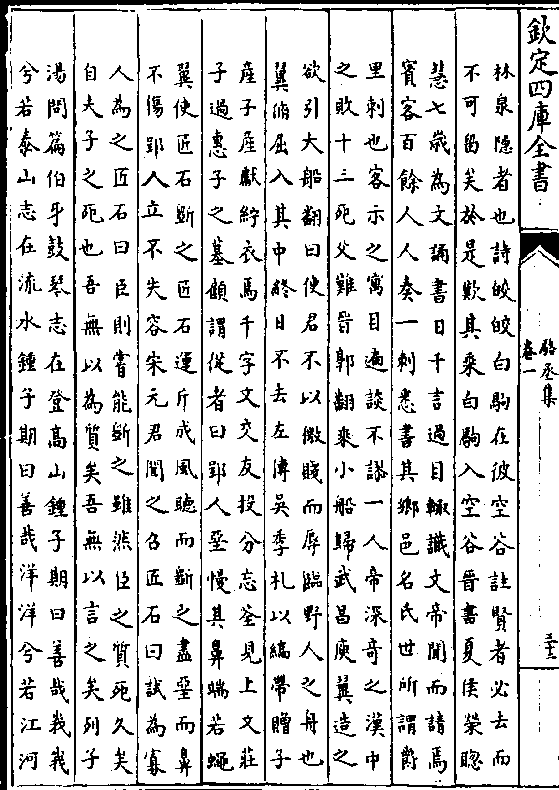 欽定四庫全書
駱丞集
卷一
三十三
林泉隱者也詩皎皎白駒在彼空谷註賢者必去而
不可留矣於是歎其乘白駒入空谷晉書夏侯榮聰
慧七歲為文誦書日千言過目輒識文帝聞而請焉
賓客百餘人人奏一刺悉書其鄉邑名氏世所謂爵
里刺也客示之寓目遍談不謬一人帝深奇之漢中
之敗十三死父難晉郭翻乘小船歸武昌庾翼造之
欲引大船翻曰使君不以微賤而辱臨野人之舟也
翼俯屈入其中終日不去左傳吳季札以縞帶贈子
產子產獻紵衣焉千字文交友投分忘筌見上文莊
子過惠子之墓顧謂從者曰郢人堊慢其鼻端若蠅
翼使匠石斲之匠石運斤成風聽而斲之盡堊而鼻
不傷郢人立不失容宋元君聞之召匠石曰試為寡
人為之匠石曰臣則嘗能斲之雖然臣之質死久矣
自夫子之死也吾無以為質矣吾無以言之矣列子
湯問篇伯牙鼓琴志在登高山鍾子期曰善哉峩峩
兮若泰山志在流水鍾子期曰善哉洋洋兮若江河